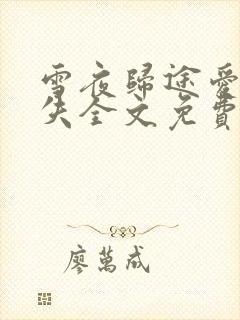 雪夜歸途愛
失全文免費
廖萬成